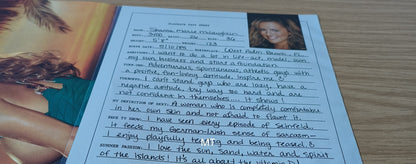 PLAYMATE DATA SHEET
NAME: Shanna Marie McLaughlin
BUST: 34D WAIST: 26 HIPS: 36
HEIGHT: 5'8" WEIGHT: 123
BIRTH DATE: 5/10/85 BIRTHPLACE: West Palm Beach, FL
AMBITIONS: I want to do a lot in life- act, model, own
my own business and start a foundation.
TURN-ONS: Adventurous, spontaneous, athletic guys with
a positive, fun-loving attitude inspire me.
TURNOFFS: I can't stand guys who are lazy, have a
negative attitude, try way too hard and are
not confident in themselves.... It shows!
MY DEFINITION OF SEXY: A woman who is completely comfortable
in her own skin and not afraid to flaunt it.
I have seen every episode of Seinfeld.
It feeds my German-Irish sense of sarcasm-
I enjoy playfully teasing and being teased.
SUMMER PASSION: I love the sun, sand, water, and spirit
of the Islands! It's all about the